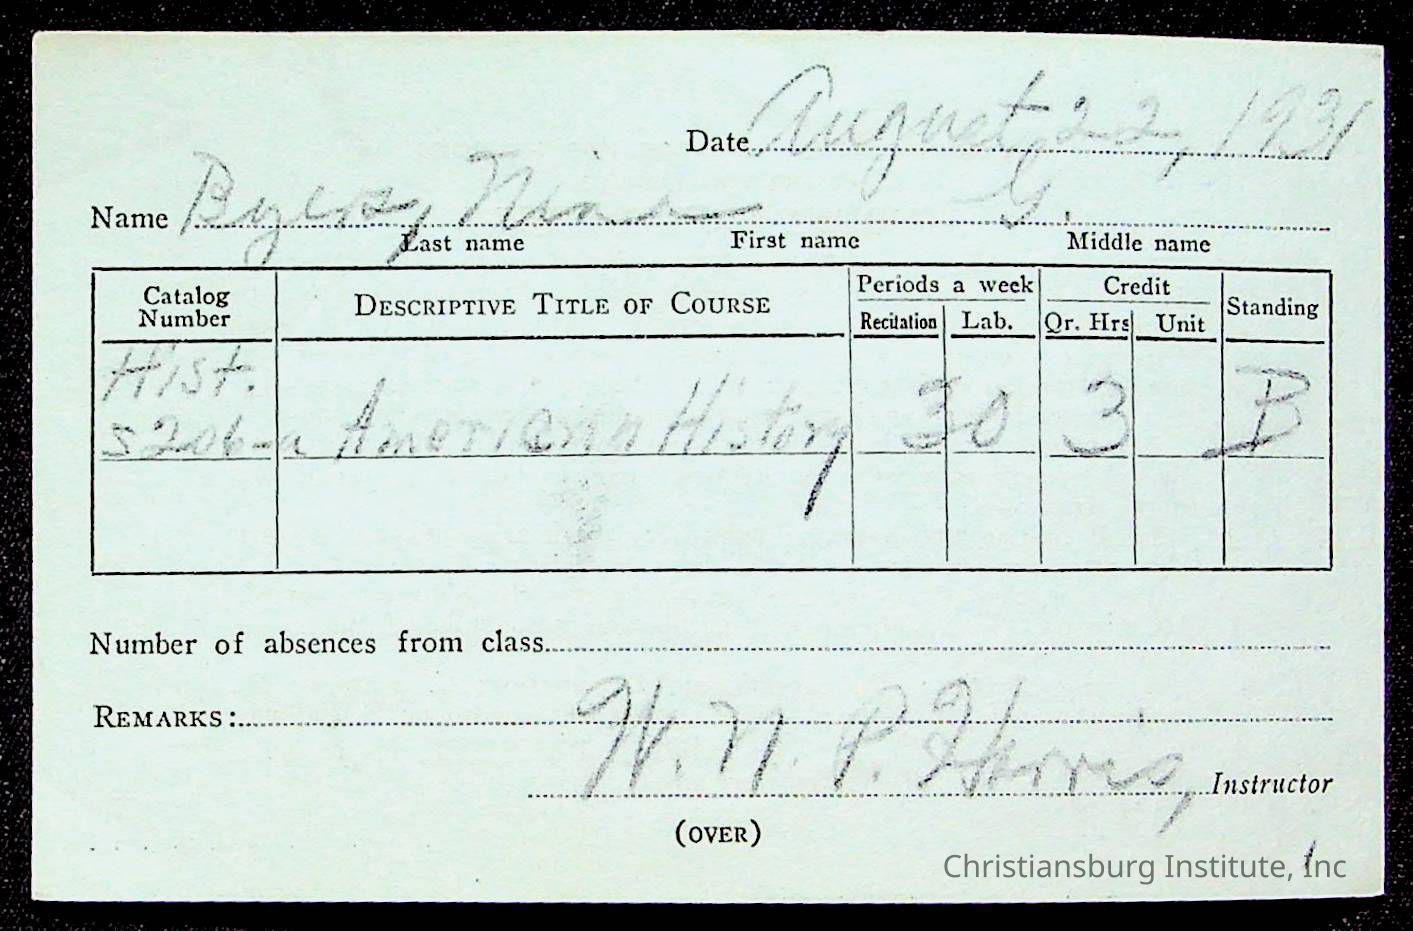 Date August 22, 1931
Name Byers, G.
Last name First name Middle name
Catalog Number DESCRIPTIVE TITLE OF COURSE Periods a week Credit Standing
Recitation Lab. Qr. Hrs Unit
Hist.
S206-a American History 30 3 B
Number of absences from class
REMARKS:
W. N. P. Harris, Instructor
(OVER)
Christiansburg Institute, Inc